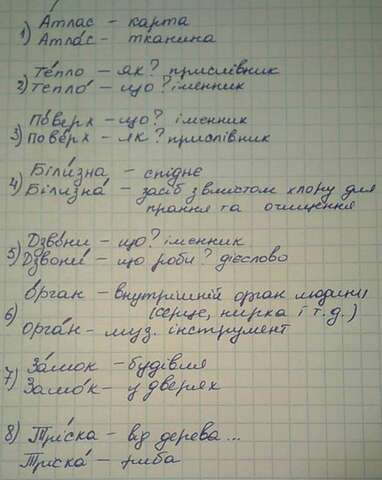 1) А́тлас – карта
Атла́с – тканина
2) Те́пло – як? прислівник
Тепло́ – що? іменник
3) По́верх – що? іменник
Пове́рх – як? прислівник
4) Білизна – спіднє
Білизна́ – засіб з вмістом хлору для
прання та очищення
5) Дзво́ни – що? іменник
Дзвони́ – що роби? дієслово
6) О́рган – внутрішній орган людини
(серце, нирка і т.д.)
Орга́н – муз. інструмент
7) За́мок – будівля
Замо́к – у дверях
8) Трі́ска – від дерева...
Тріска́ – риба